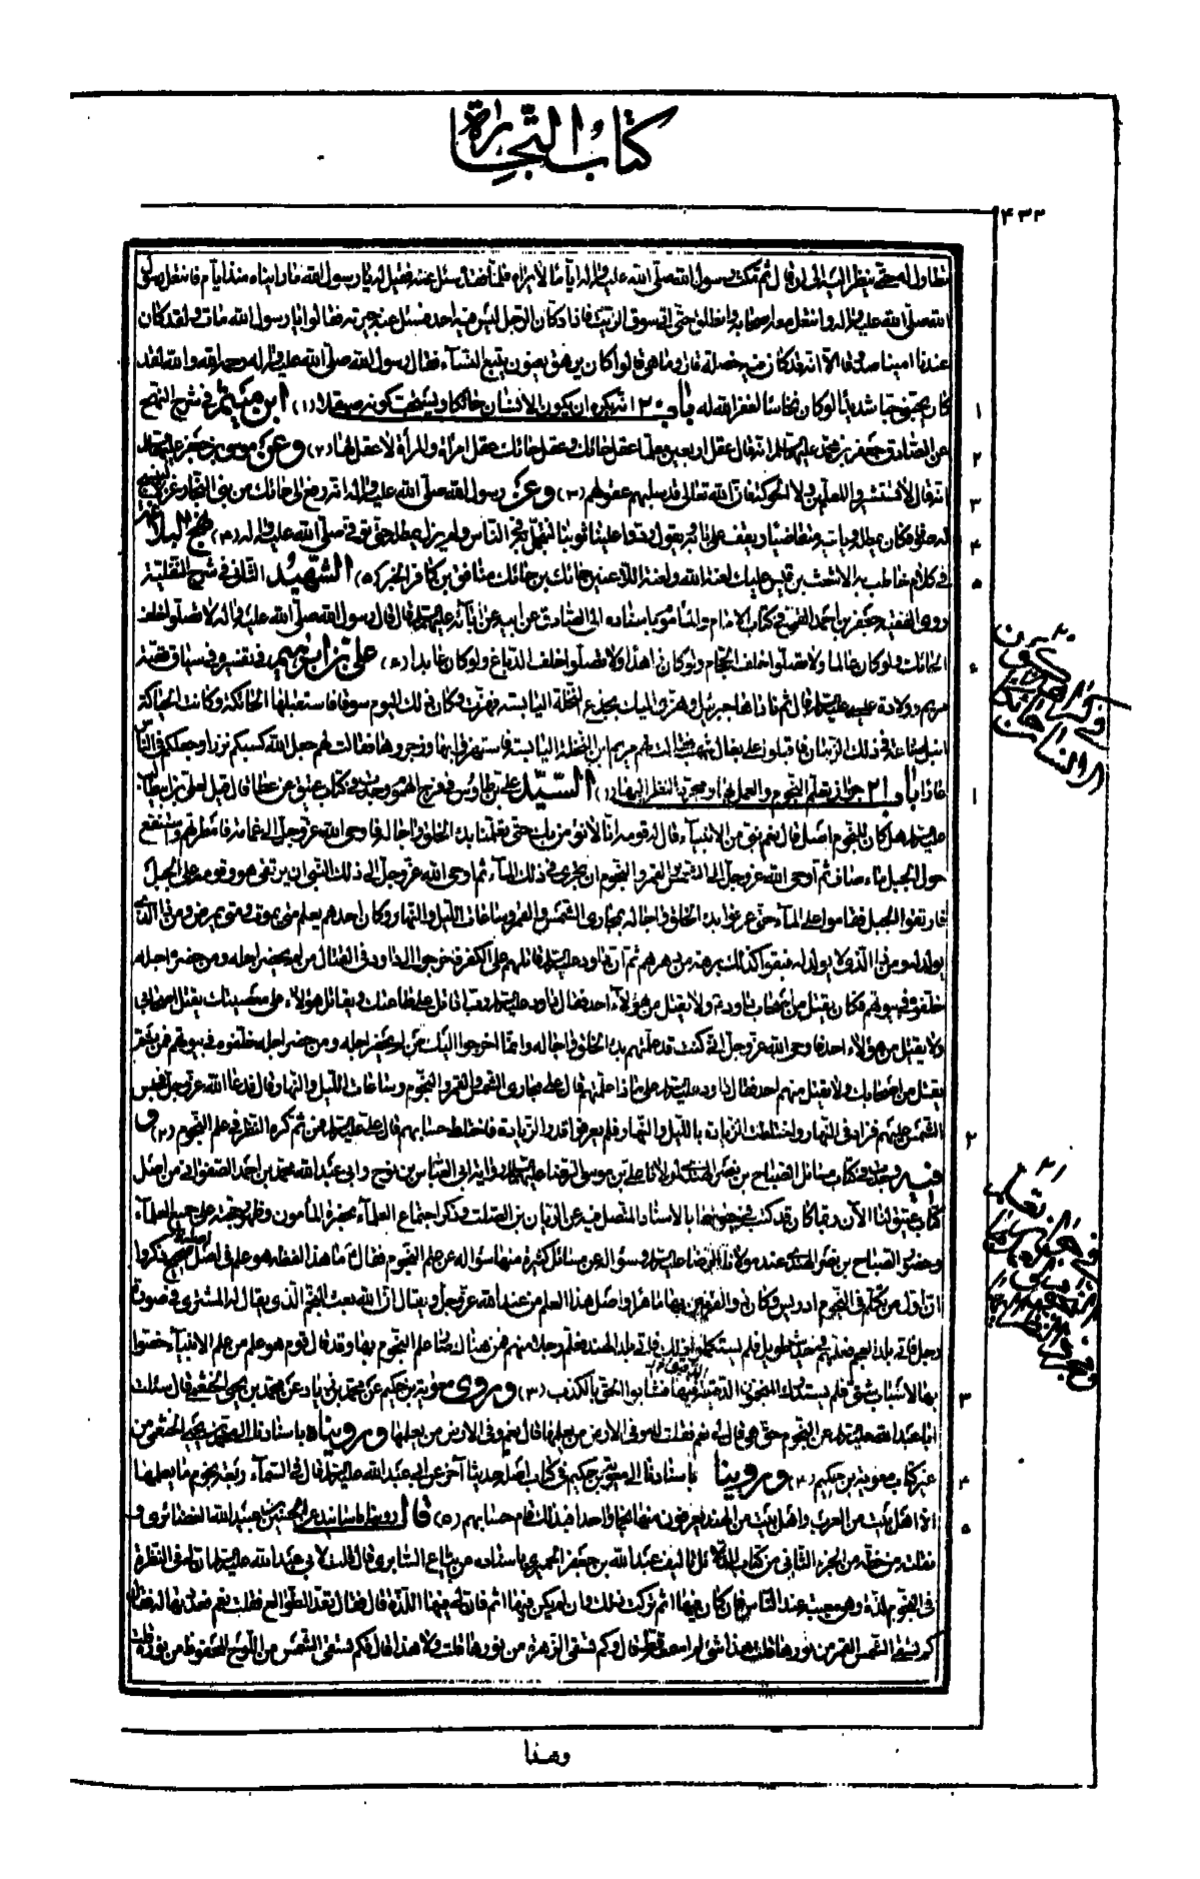 كتاب التجارة
٤٣٢
تطاول له حتى ينظر اليه ثم قال ثم مكث رسول الله صلى الله عليه وآله اياما لا يراه فلما فقده سئل عنه فقيل له يا رسول الله ما رايناه منذ ايام فانتعل رسول
الله صلى الله عليه وآله وانتعل معه اصحابه وانطلق حتى اتى سوق الزيت فاذا دكان الرجل ليس فيه احد فسئل عنه جيرته فقالوا يا رسول الله مات ولقد كان
عندنا امينا صدوقا الا انه قد كان فيه خصلة قال وما هي قالوا كان يرهق يعنون يتبع النساء فقال رسول الله صلى الله عليه وآله رحمه الله والله لقد
كان يحبني حبا شديدا لو كان نخاسا لغفر الله له باب ٢٠ انه يكره ان يكون الانسان حائكا ويستحب كونه صيقلا (١) ابن ميثم في شرح النهج
عن الصادق جعفر بن محمد عليهما السلام انه قال عقل اربعين معلما عقل حائك وعقل حائك عقل امرأة والمرأة لا عقل لها (٢) وعن موسى بن جعفر عليهما السلام
انه قال لا تستشيروا المعلمين ولا الحوكة فان الله تعالى قد سلبهم عقولهم (٣) وعن رسول الله صلى الله عليه وآله انه دفع الى حائك من بني النجار غزلا لينسج
له صوفا فكان يمطله ويأتيه متقاضيا ويقف على بابه ويقول ردوا علينا ثوبنا لنتجمل به في الناس ولم يزل يمطله حتى توفي صلى الله عليه وآله (٤) نهج البلاغة
في كلام خاطب به الاشعث بن قيس عليك لعنة الله ولعنة اللاعنين حائك بن حائك منافق بن كافر الخبر (٥) الشهيد الثاني في شرح النفلية
روى الفقيه جعفر بن احمد القمي في كتاب الامام والمأموم باسناده الى الصادق عن ابيه عن آبائه عليهم السلام قال قال رسول الله صلى الله عليه وآله لا تصلوا خلف
الحائك ولو كان عالما ولا تصلوا خلف الحجام ولو كان زاهدا ولا تصلوا خلف الدباغ ولو كان عابدا (٦) علي بن ابراهيم في تفسيره في سياق قصة
مريم وولادة عيسى عليه السلام قال ثم ناداها جبرئيل وهزي اليك بجذع النخلة اليابسة فهزت وكان ذلك اليوم سوقا فاستقبلها الحاكة وكانت الحياكة
انبل صناعة في ذلك الزمان فاقبلوا على بغال شهب فقالت لهم مريم اين النخلة اليابسة فاستهزؤا بها وزجروها فقالت لهم جعل الله كسبكم نزرا وجعلكم في الناس
عارا باب ٢١ جواز تعلم النجوم والعمل بها ومجرد النظر اليها (١) السيد علي بن طاوس في فرج المهموم وجدت في كتاب عتيق عن عطا قال قيل لعلي بن ابيطالب
عليه السلام هل كان للنجوم اصل قال نعم نبي من الانبياء قال له قومه انا لا نؤمن بك حتى تعلمنا بدء الخلق واجاله فاوحى الله عز وجل الى غمامة فامطرتهم واستنقع
حول الجبل ماء صاف ثم اوحى الله عز وجل الى الشمس والقمر والنجوم ان تجري في ذلك الماء ثم اوحى الله عز وجل الى ذلك النبي ان يرتقي هو وقومه على الجبل
فارتقوا الجبل فقاموا على الماء حتى عرفوا بدء الخلق واجاله بمجاري الشمس والقمر وساعات الليل والنهار وكان احدهم يعلم متى يموت ومتى يمرض ومن ذا الذي
يولد له ومن ذا الذي لا يولد له فبقوا كذلك برهة من دهرهم ثم ان داود عليه السلام قاتلهم على الكفر فاخرجوا الى داود في القتال من لم يحضر اجله ومن حضر اجله
خلفوه في بيوتهم فكان يقتل من اصحاب داود ولا يقتل من هؤلاء احد فقال داود عليه السلام رب اقاتل على طاعتك ويقاتل هؤلاء على معصيتك يقتل اصحابي
ولا يقتل من هؤلاء احد فاوحى الله عز وجل اني كنت قد علمتهم بدء الخلق واجاله وانما اخرجوا اليك من لم يحضر اجله ومن حضر اجله خلفوه في بيوتهم فمن ثم
يقتل من اصحابك ولا يقتل منهم احد فقال داود عليه السلام على ماذا علمتهم قال على مجاري الشمس والقمر والنجوم وساعات الليل والنهار قال فدعا الله عز وجل فحبس
الشمس عليهم فزاد في النهار واختلطت الزيادة بالليل والنهار فلم يعرفوا قدر الزيادة فاختلط حسابهم قال علي عليه السلام فمن ثم كره النظر في علم النجوم (٢) و
فيه وجدت في كتاب مسائل الصباح بن نصر الهندي لمولانا علي بن موسى الرضا عليه السلام رواية ابي العباس بن نوح وابي عبد الله محمد بن احمد الصفواني من اصل
كتاب عتيق لنا الآن ربما كان قد كتب في حياتهما بالاسناد المتصل فيه عن الريان بن الصلت وذكر اجتماع العلماء بحضرة المأمون وظهور حجته على جميع العلماء
وحضور الصباح بن نصر الهندي عند مولانا الرضا عليه السلام وسؤاله عن مسائل كثيرة منها سؤاله عن علم النجوم فقال ما هذا لفظه هو علم في اصل صحيح ذكروا
ان اول من تكلم في النجوم ادريس وكان ذو القرنين بها ماهرا واصل هذا العلم من عند الله عز وجل ويقال ان الله بعث النجم الذي يقال له المشتري في صورة
رجل فاتى بلد العجم فعلمهم في حديث طويل فلم يستكملوا ذلك فاتى بلد الهند فعلم رجلا منهم فمن هناك صار علم النجوم بها وقد قال قوم هو علم من علم الانبياء خصوا
بها لاسباب شتى فلم يستدرك المنجمون الدقيقة فيها فشابوا الحق بالكذب (٣) وروى معوية بن حكيم عن محمد بن زياد عن محمد بن يحيى الخثعمي قال سئلت
ابا عبد الله عليه السلام عن النجوم حق هي قال لي نعم فقلت له وفي الارض من يعلمها قال نعم وفي الارض من يعلمها وروينا باسنادنا الى محمد بن يحيى الخثعمي من
غير كتاب معوية بن حكيم (٤) وروينا باسنادنا الى معوية بن حكيم في كتاب اصله حديثا آخر عن ابي عبد الله عليه السلام قال في السماء اربعة نجوم ما يعلمها
الا اهل بيت من العرب واهل بيت من الهند يعرفون منها نجما واحدا فبذلك قام حسابهم (٥) قال روينا باسانيد عن الحسين بن عبيد الله الغضائري و
نقلت من خطه من الجزء الثاني من كتاب الدلائل تأليف عبد الله بن جعفر الحميري باسناده عن بياع السابري قال قلت لابي عبد الله عليه السلام ان لي في النظرة
في النجوم لذة وهي معيبة عند الناس فان كان فيها اثم تركت ذلك وان لم يكن فيها اثم فان لي فيها اللذة قال فقال تعد الطوالع فقلت نعم فعددتها له فقال
كم تسقي الشمس القمر من نورها قلت هذا شيء لم اسمعه قط قال وكم تسقي الزهرة من نورها قلت ولا هذا قال فكم تسقي الشمس من اللوح المحفوظ من نوره قلت
وهذا
١
٢
٣
٤
٥
٦
١
٢
٣
٤
٥
٢٠
٢١